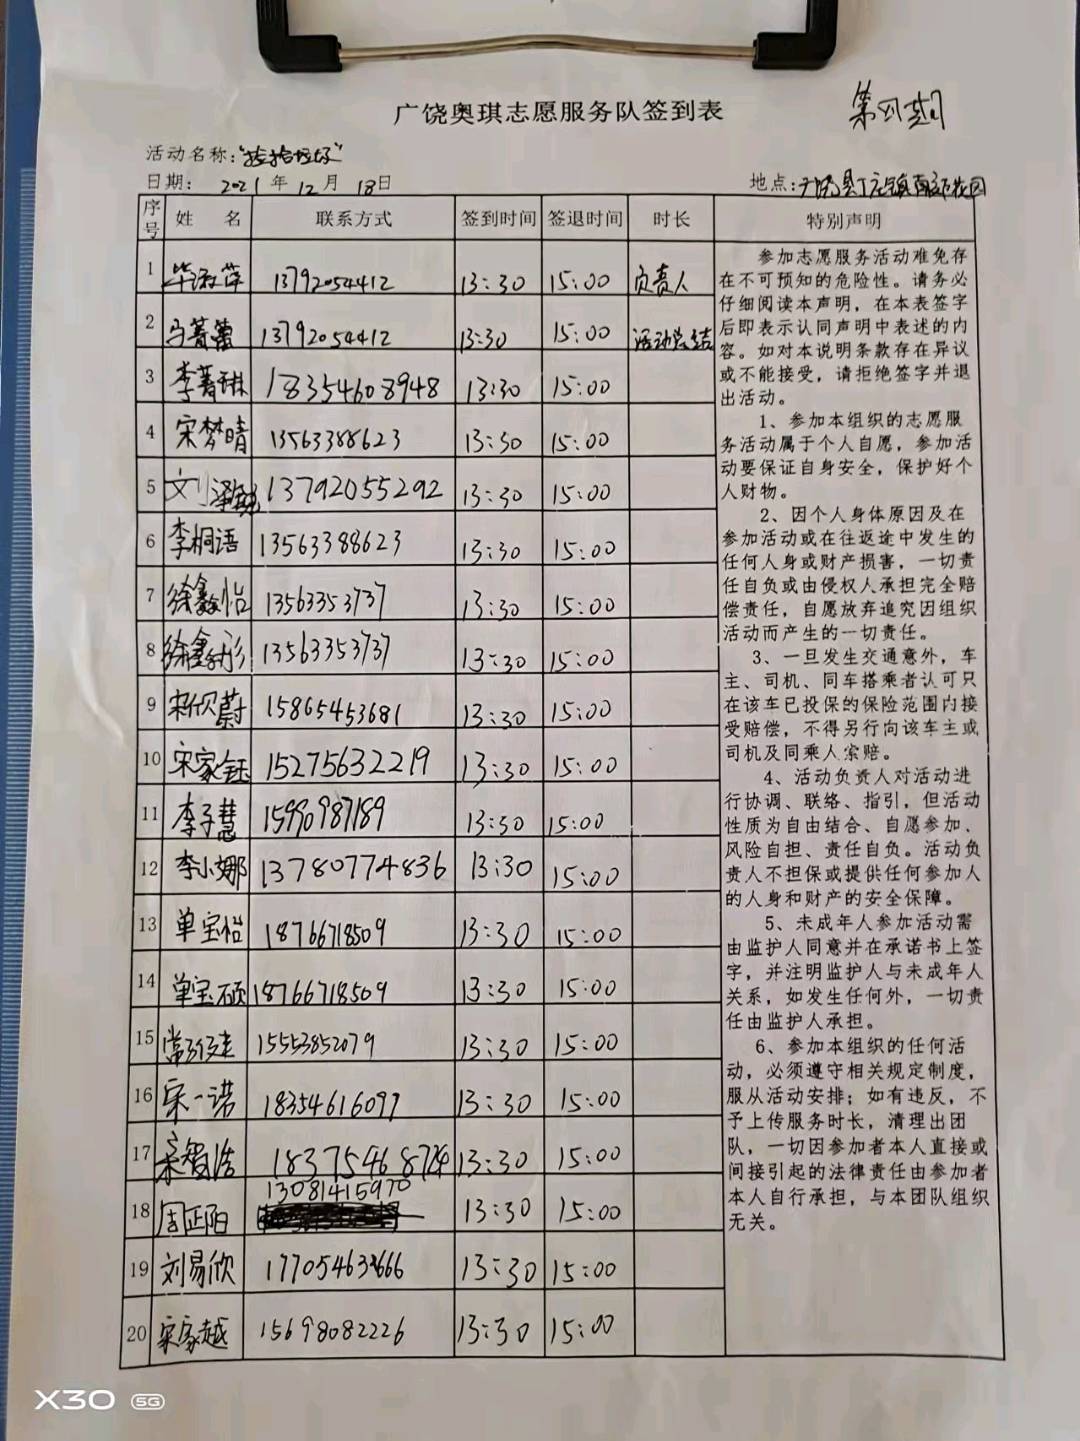 广饶奥琪志愿服务队签到表
第四期
活动名称：“捡拾垃圾”
日期： 2021 年 12 月 18 日
地点：广饶县丁庄镇南部花园
序号 姓 名 联系方式 签到时间 签退时间 时长 特别声明
1 毕淑萍 13792054412 13:30 15:00 负责人
2 马菁蕾 13792054412 13:30 15:00 活动总结
3 李菁琳 18354608948 13:30 15:00
4 宋梦晴 13563388623 13:30 15:00
5 刘 13792055292 13:30 15:00
6 李桐语 13563388623 13:30 15:00
7 徐鑫怡 13563353737 13:30 15:00
8 徐鑫彤 13563353737 13:30 15:00
9 宋欣蔚 15865453681 13:30 15:00
10 宋家钰 15275632219 13:30 15:00
11 李子慧 15990987189 13:30 15:00
12 李小娜 13780774836 13:30 15:00
13 单宝怡 18766718509 13:30 15:00
14 单宝硕 18766718509 13:30 15:00
15 常 15553852079 13:30 15:00
16 宋一诺 18354616097 13:30 15:00
17 宋智浩 18375468724 13:30 15:00
18 周正阳 13081415970 13:30 15:00
19 刘易欣 17705463666 13:30 15:00
20 宋家越 15698082226 13:30 15:00
参加志愿服务活动难免存
在不可预知的危险性。请务必
仔细阅读本声明，在本表签字
后即表示认同声明中表述的内
容。如对本说明条款存在异议
或不能接受，请拒绝签字并退
出活动。
1、参加本组织的志愿服
务活动属于个人自愿，参加活
动要保证自身安全，保护好个
人财物。
2、因个人身体原因及在
参加活动或在往返途中发生的
任何人身或财产损害，一切责
任自负或由侵权人承担完全赔
偿责任，自愿放弃追究因组织
活动而产生的一切责任。
3、一旦发生交通意外，车
主、司机、同车搭乘者认可只
在该车已投保的保险范围内接
受赔偿，不得另行向该车主或
司机及同乘人索赔。
4、活动负责人对活动进
行协调、联络、指引，但活动
性质为自由结合、自愿参加、
风险自担、责任自负。活动负
责人不担保或提供任何参加人
的人身和财产的安全保障。
5、未成年人参加活动需
由监护人同意并在承诺书上签
字，并注明监护人与未成年人
关系，如发生任何外，一切责
任由监护人承担。
6、参加本组织的任何活
动，必须遵守相关规定制度，
服从活动安排；如有违反，不
予上传服务时长，清理出团
队，一切因参加者本人直接或
间接引起的法律责任由参加者
本人自行承担，与本团队组织
无关。
X30 5G